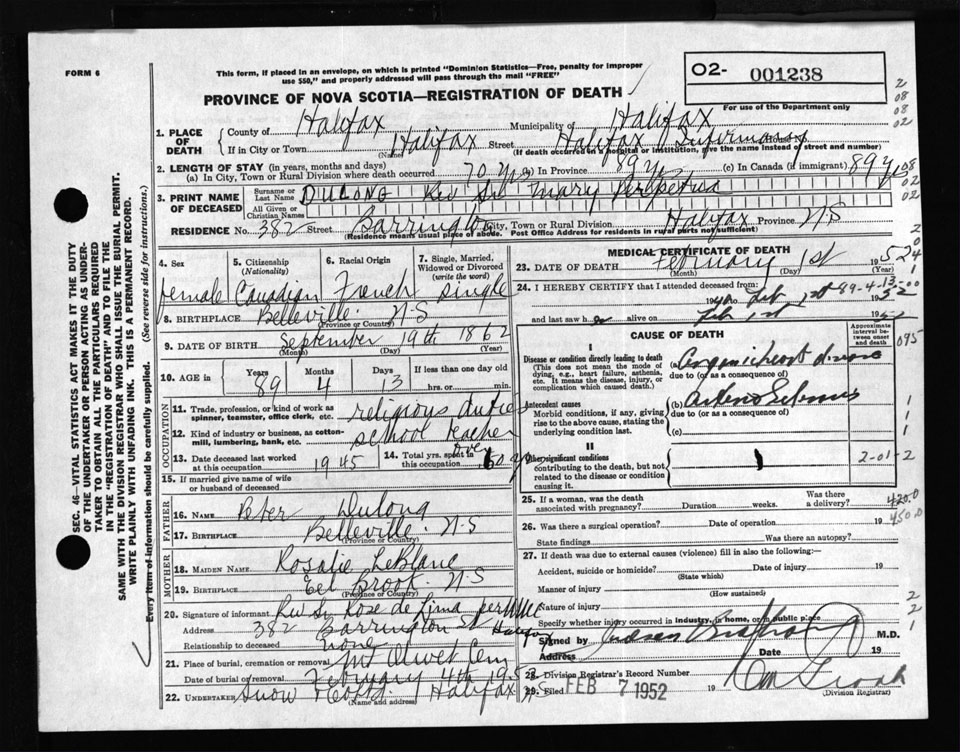 FORM 6
This form, if placed in an envelope, on which is printed "Dominion Statistics—Free, penalty for improper use $50," and properly addressed will pass through the mail "FREE"
O2- 001238
For use of the Department only
PROVINCE OF NOVA SCOTIA—REGISTRATION OF DEATH
1. PLACE OF DEATH County of Halifax Municipality of Halifax
If in City or Town Halifax Street Halifax Infirmary
(Name) (If death occurred in a hospital or institution, give the name instead of street and number)
2. LENGTH OF STAY (in years, months and days)
(a) In City, Town or Rural Division where death occurred 70 yrs (b) In Province 89 yrs (c) In Canada (if immigrant) 89 yrs
3. PRINT NAME OF DECEASED Surname or Last Name DULONG Rev Sr Mary Perpetua
All Given or Christian Names
RESIDENCE No. 382 Street Barrington City, Town or Rural Division Halifax Province N.S
(Residence means usual place of abode. Post Office Address for residents in rural parts not sufficient)
4. Sex female
5. Citizenship (Nationality) Canadian
6. Racial Origin French
7. Single, Married, Widowed or Divorced (write the word) single
8. BIRTHPLACE Belleville N.S
(Province or Country)
9. DATE OF BIRTH September 19th 1862
(Month) (Day) (Year)
10. AGE in Years 89 Months 4 Days 13 If less than one day old hrs. or min.
OCCUPATION
11. Trade, profession, or kind of work as spinner, teamster, office clerk, etc. religious duties
12. Kind of industry or business, as cotton-mill, lumbering, bank, etc. school teacher
13. Date deceased last worked at this occupation 1945
14. Total yrs. spent in this occupation over 50 yrs
15. If married give name of wife or husband of deceased
FATHER
16. NAME Peter Dulong
17. BIRTHPLACE Belleville N.S
(Province or Country)
MOTHER
18. MAIDEN NAME Rosalie LeBlanc
19. BIRTHPLACE Eel Brook N.S
(Province or Country)
20. Signature of informant Rev Sr Rose de Lima
Address 382 Barrington St Halifax
Relationship to deceased none
21. Place of burial, cremation or removal Mt Olivet Cem
Date of burial or removal February 4th 1952
22. UNDERTAKER Snow & Co Ltd Halifax
(Name and address)
MEDICAL CERTIFICATE OF DEATH
23. DATE OF DEATH February 1st 1952
(Month) (Day) (Year)
24. I HEREBY CERTIFY that I attended deceased from:
Feb 1st 1952
89-4-13-00
and last saw h er alive on Feb 1st 1952
CAUSE OF DEATH
Approximate interval between onset and death
095
I
Disease or condition directly leading to death (This does not mean the mode of dying, e.g., heart failure, asthenia, etc. It means the disease, injury, or complication which caused death.)
(a) organic heart disease
due to (or as a consequence of)
Antecedent causes
Morbid conditions, if any, giving rise to the above cause, stating the underlying condition last.
(b) arterio Sclerosis
due to (or as a consequence of)
(c)
II
Other significant conditions contributing to the death, but not related to the disease or condition causing it.
2-01-2
25. If a woman, was the death associated with pregnancy? Duration weeks. Was there a delivery?
420.0
450.0
26. Was there a surgical operation? Date of operation 19
State findings Was there an autopsy?
27. If death was due to external causes (violence) fill in also the following:—
Accident, suicide or homicide? Date of injury 19
(State which)
Manner of injury
(How sustained)
Nature of injury
Specify whether injury occurred in industry, in home, or in public place
Signed by M.D.
Address Date 19
28. Division Registrar's Record Number
29. Filed FEB 7 1952 19
(Division Registrar)
SEC. 46—VITAL STATISTICS ACT MAKES IT THE DUTY OF THE UNDERTAKER OR PERSON ACTING AS UNDERTAKER TO OBTAIN ALL THE PARTICULARS REQUIRED IN THE "REGISTRATION OF DEATH" AND TO FILE THE SAME WITH THE DIVISION REGISTRAR WHO SHALL ISSUE THE BURIAL PERMIT.
WRITE PLAINLY WITH UNFADING INK. THIS IS A PERMANENT RECORD.
Every item of information should be carefully supplied. (See reverse side for instructions.)